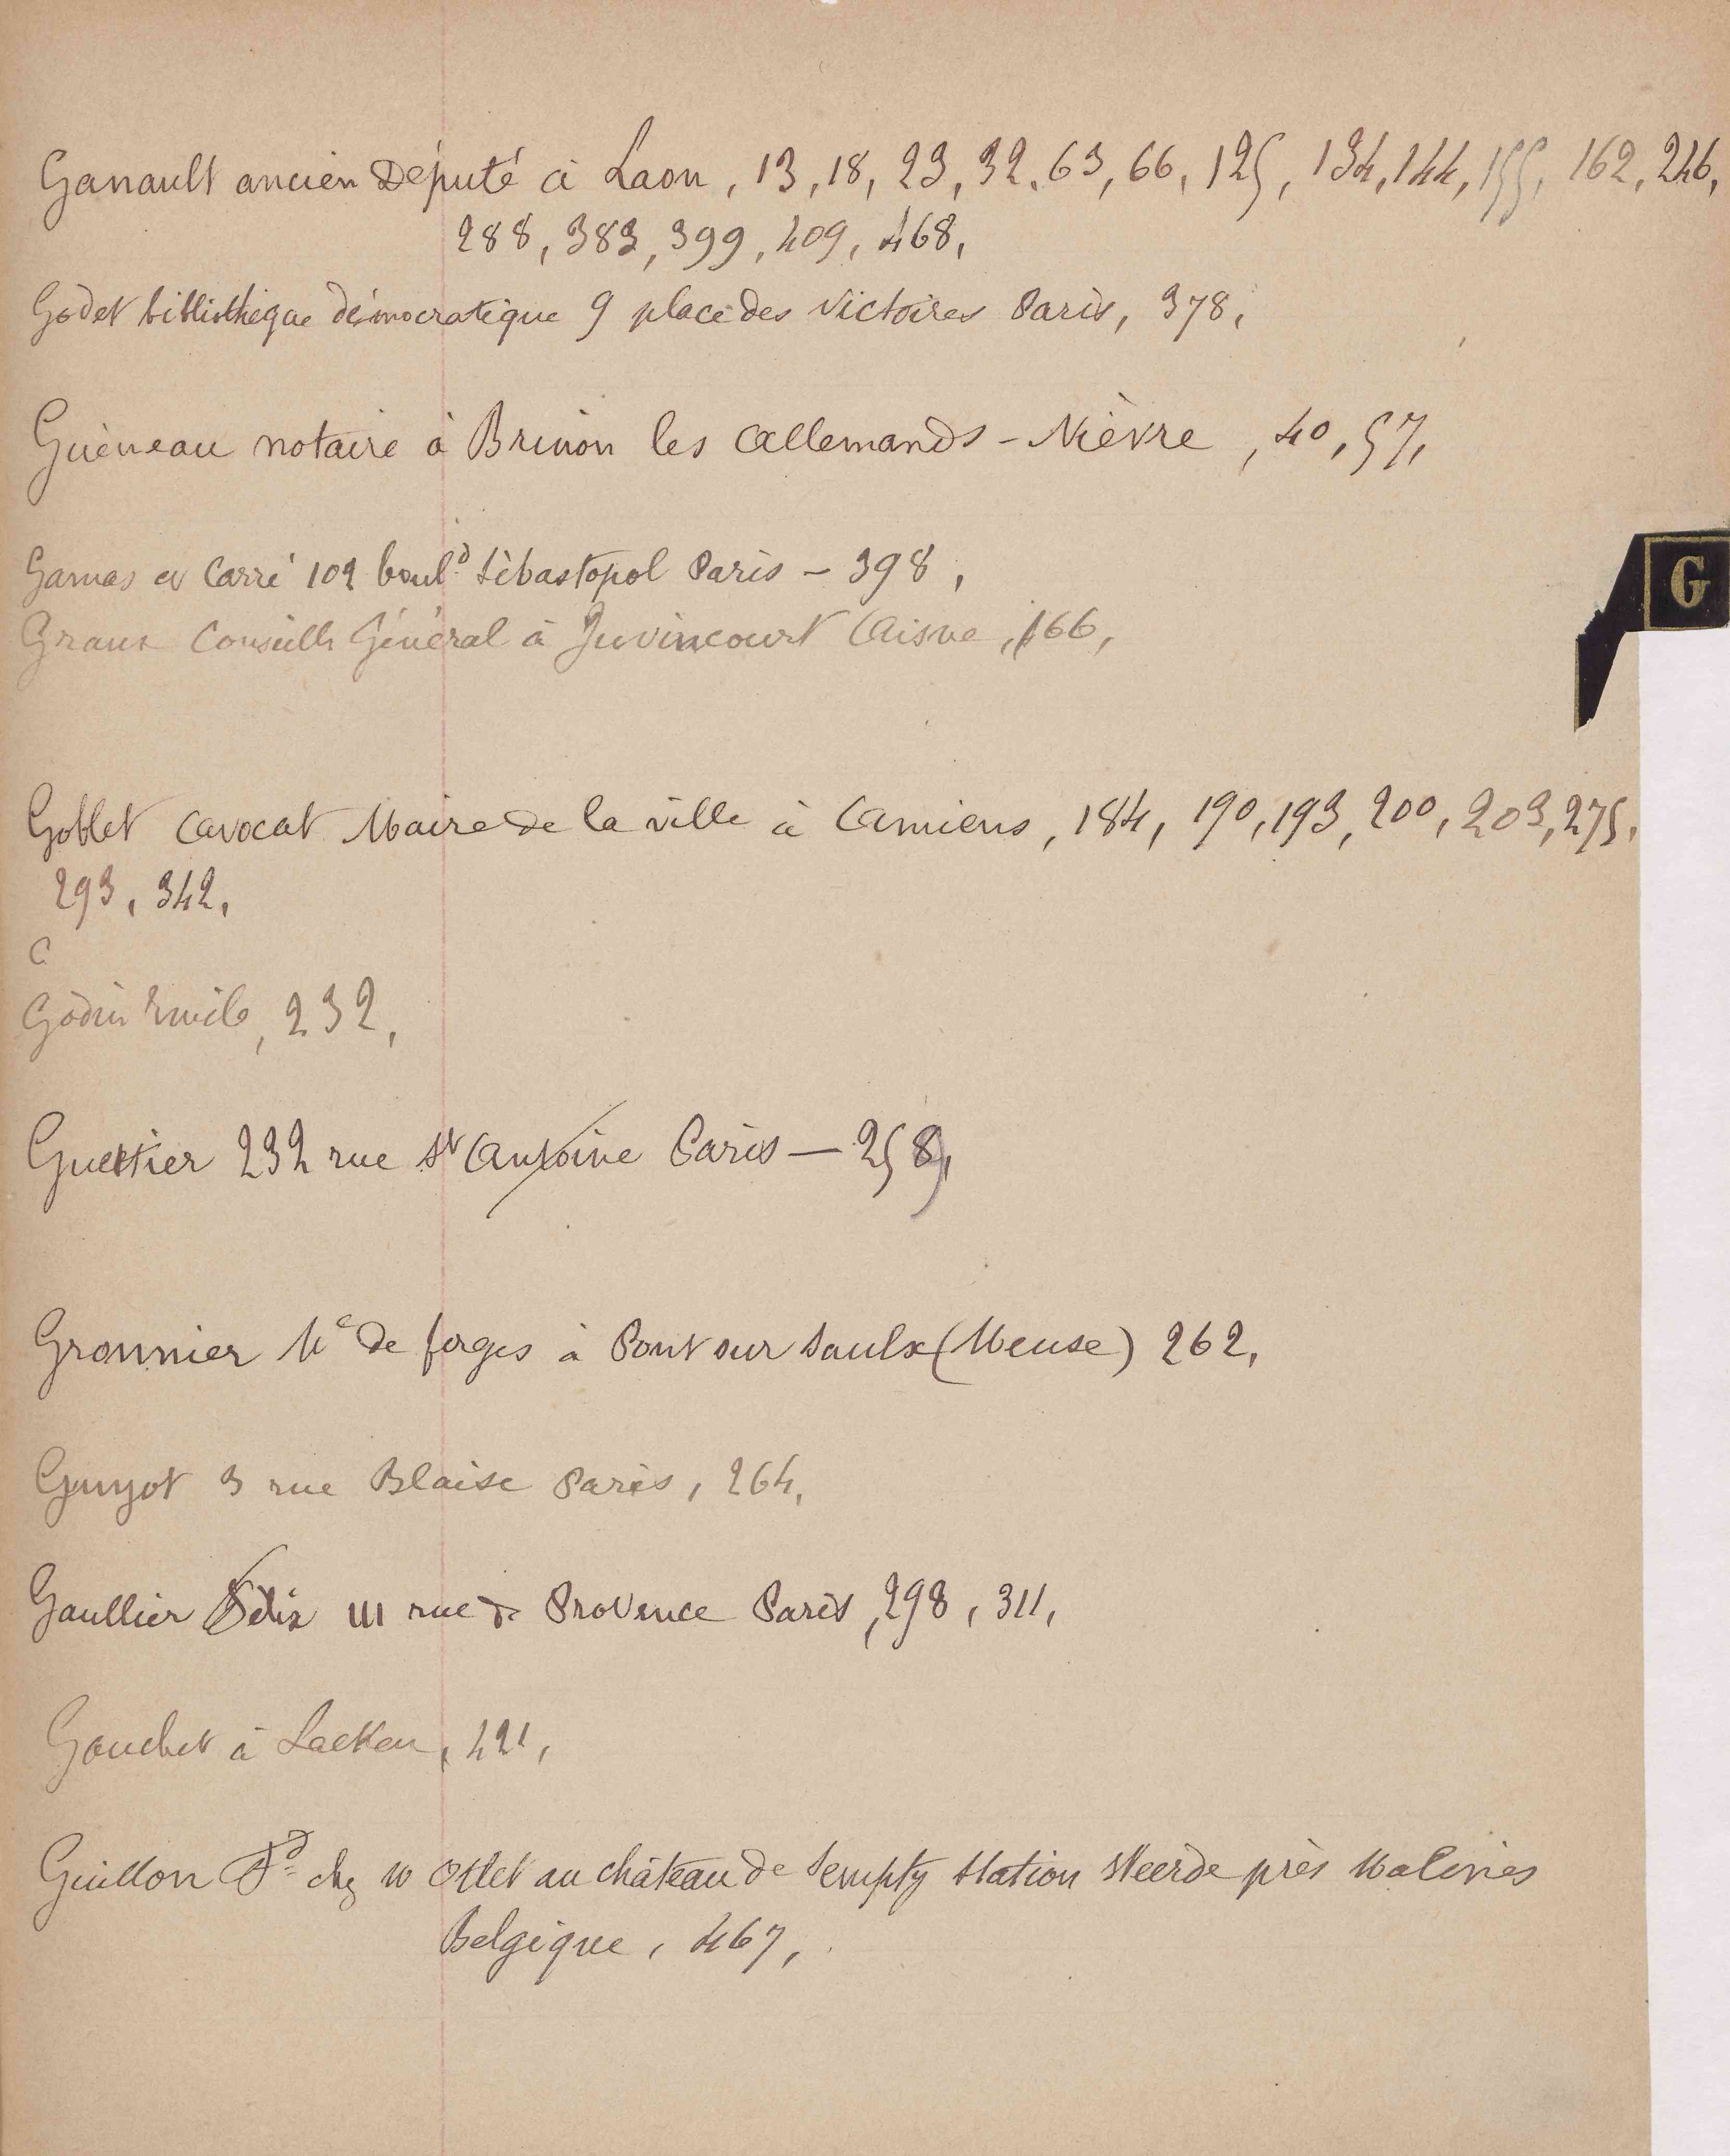 Ganault ancien Député à Laon, 13, 18, 23, 32, 63, 66, 125, 134, 144, 155, 162, 246,
288, 383, 399, 409, 468,
Godet bibliothèque démocratique 9 place des Victoires Paris, 378,
Guéneau notaire à Brinon les Allemands - Nièvre, 40, 57,
Gamas et Carré 102 boul.d Sébastopol Paris - 398,
G
Graux Conseille Général à Juvincourt Aisne, 166,
Goblet Avocat Maire de la ville à Amiens, 184, 190, 193, 200, 203, 275,
293, 342,
Godin Emile, 232,
Guettier 232 rue St Antoine Paris — 258,
Gronnier Me de forges à Pont sur Saulx (Meuse) 262,
Guyot 3 rue Blaise Paris, 264,
Gaullier Félix 111 rue de Provence Paris, 298, 311,
Gouchet à Laeken, 421,
Guillon Fd chez Mr Otlet au château de Sempty Station Weerde près Malines
Belgique, 467,